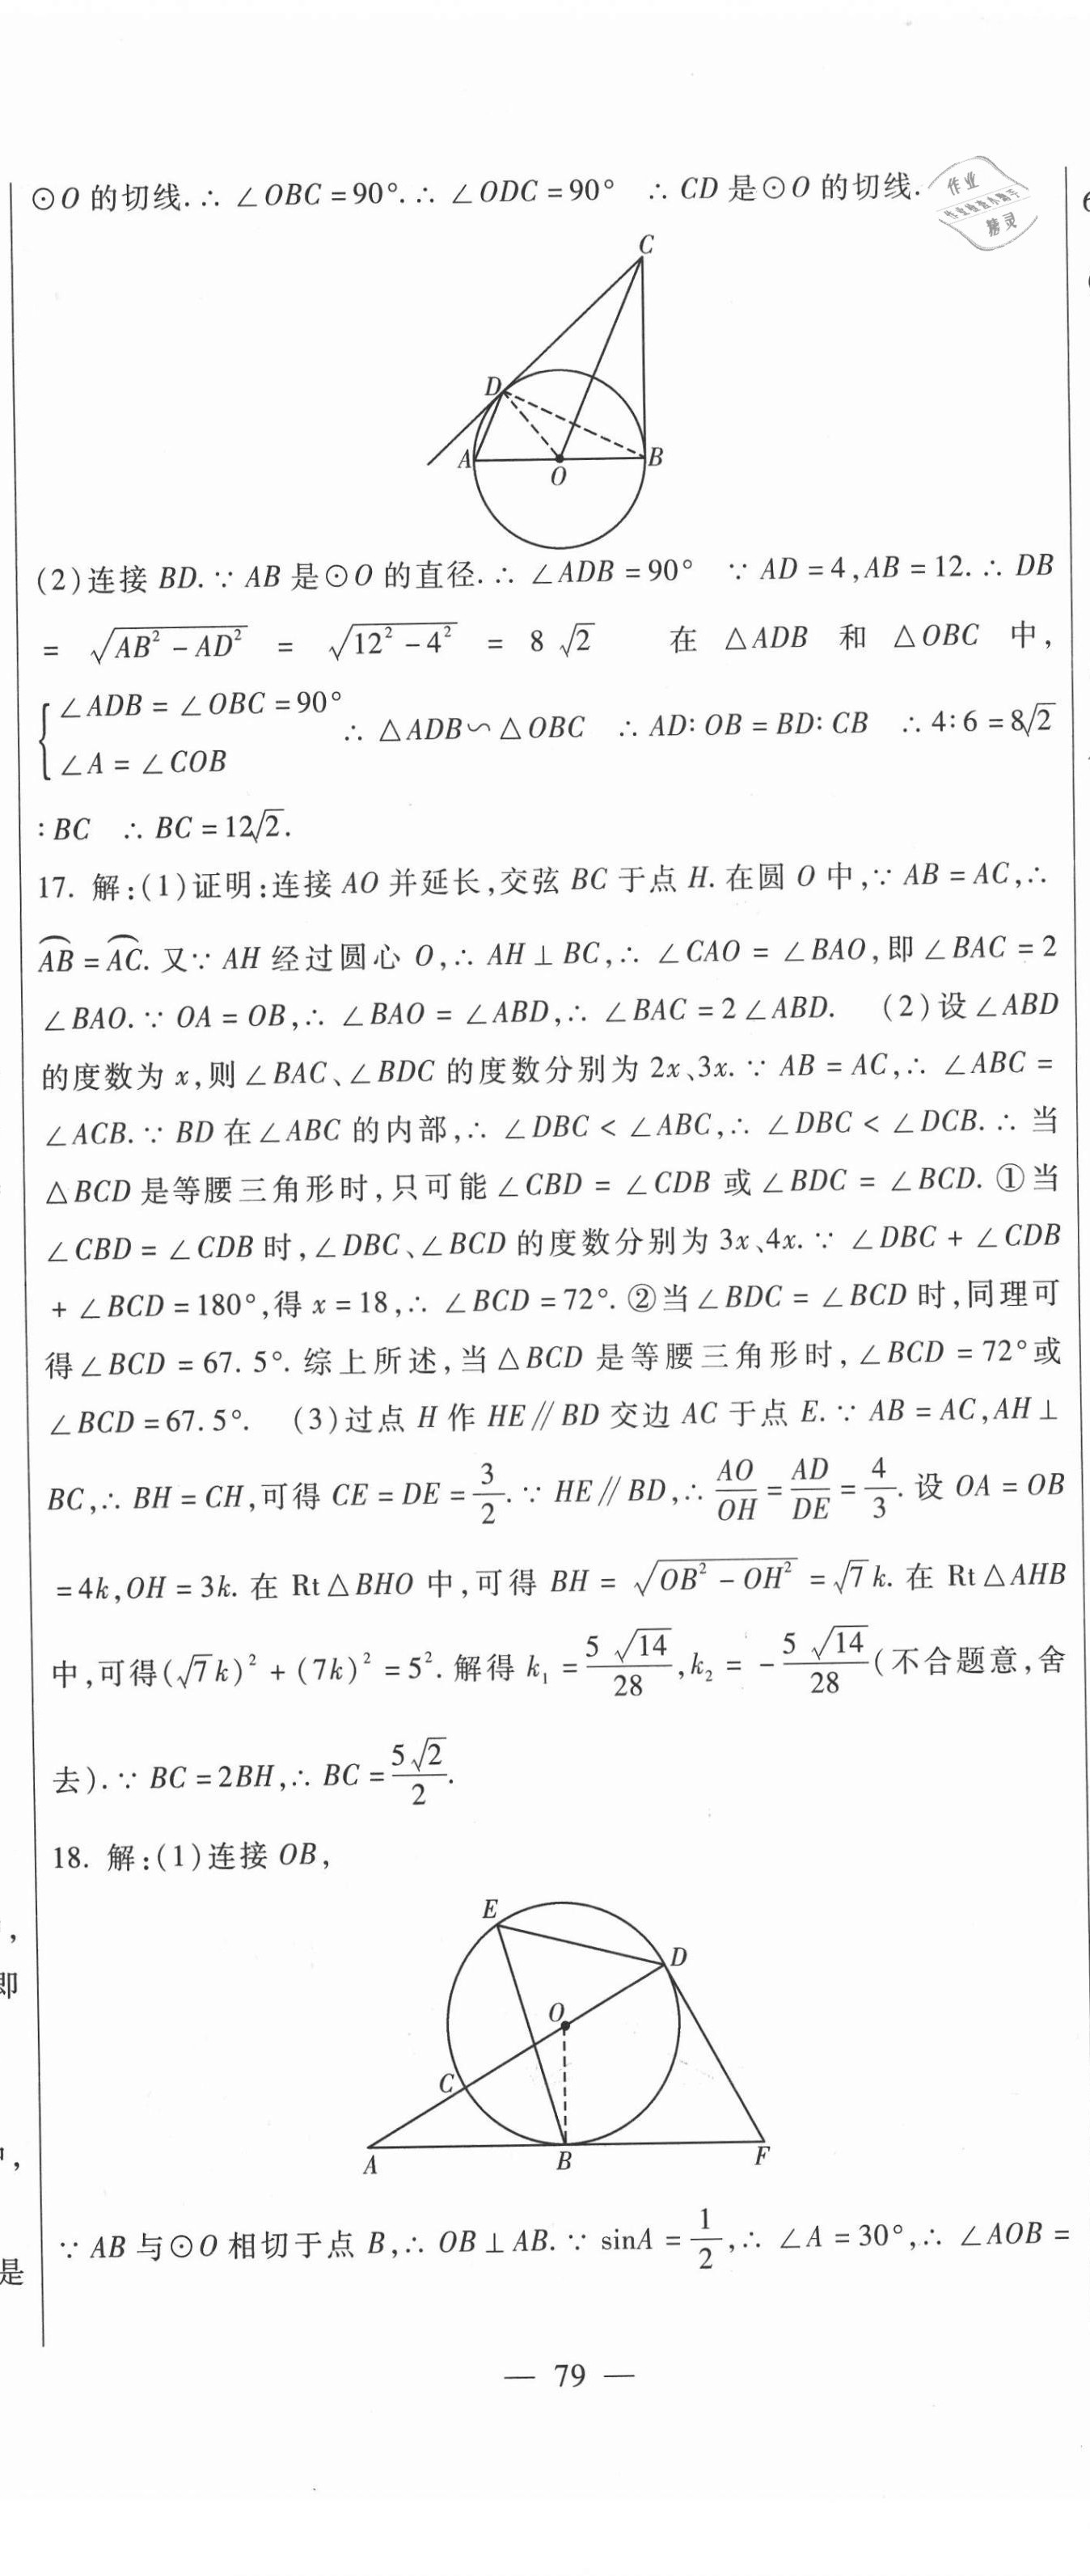 ⊙O 的切线.∴ ∠OBC=90°.∴ ∠ODC=90° ∴ CD 是⊙O 的切线.
作业
作业检查小助手
精灵
C
D
A
O
B
(2)连接 BD.∵ AB 是⊙O 的直径.∴ ∠ADB=90° ∵ AD=4,AB=12.∴ DB
= √(AB²-AD²) = √(12²-4²) = 8√2 在 △ADB 和 △OBC 中,
{∠ADB=∠OBC=90°
∠A=∠COB
∴ △ADB∽△OBC ∴ AD∶OB=BD∶CB ∴ 4∶6=8√2
∶BC ∴ BC=12√2.
17. 解:(1)证明:连接 AO 并延长,交弦 BC 于点 H. 在圆 O 中,∵ AB=AC,∴
⌒AB=⌒AC. 又∵ AH 经过圆心 O,∴ AH⊥BC,∴ ∠CAO=∠BAO,即∠BAC=2
∠BAO.∵ OA=OB,∴ ∠BAO=∠ABD,∴ ∠BAC=2∠ABD. (2)设∠ABD
的度数为 x,则∠BAC、∠BDC 的度数分别为 2x、3x.∵ AB=AC,∴ ∠ABC=
∠ACB.∵ BD 在∠ABC 的内部,∴ ∠DBC<∠ABC,∴ ∠DBC<∠DCB.∴ 当
△BCD 是等腰三角形时,只可能∠CBD=∠CDB 或∠BDC=∠BCD. ①当
∠CBD=∠CDB 时,∠DBC、∠BCD 的度数分别为 3x、4x.∵ ∠DBC+∠CDB
+∠BCD=180°,得 x=18,∴ ∠BCD=72°. ②当∠BDC=∠BCD 时,同理可
得∠BCD=67.5°. 综上所述,当△BCD 是等腰三角形时,∠BCD=72°或
∠BCD=67.5°. (3)过点 H 作 HE∥BD 交边 AC 于点 E.∵ AB=AC,AH⊥
BC,∴ BH=CH,可得 CE=DE=3/2.∵ HE∥BD,∴ AO/OH=AD/DE=4/3. 设 OA=OB
=4k,OH=3k. 在 Rt△BHO 中,可得 BH=√(OB²-OH²)=√7k. 在 Rt△AHB
中,可得(√7k)²+(7k)²=5². 解得 k₁=5√14/28,k₂=-5√14/28(不合题意,舍
去).∵ BC=2BH,∴ BC=5√2/2.
18. 解:(1)连接 OB,
E
D
O
C
A
B
F
∵ AB 与⊙O 相切于点 B,∴ OB⊥AB.∵ sinA=1/2,∴ ∠A=30°,∴ ∠AOB=
即
是
— 79 —